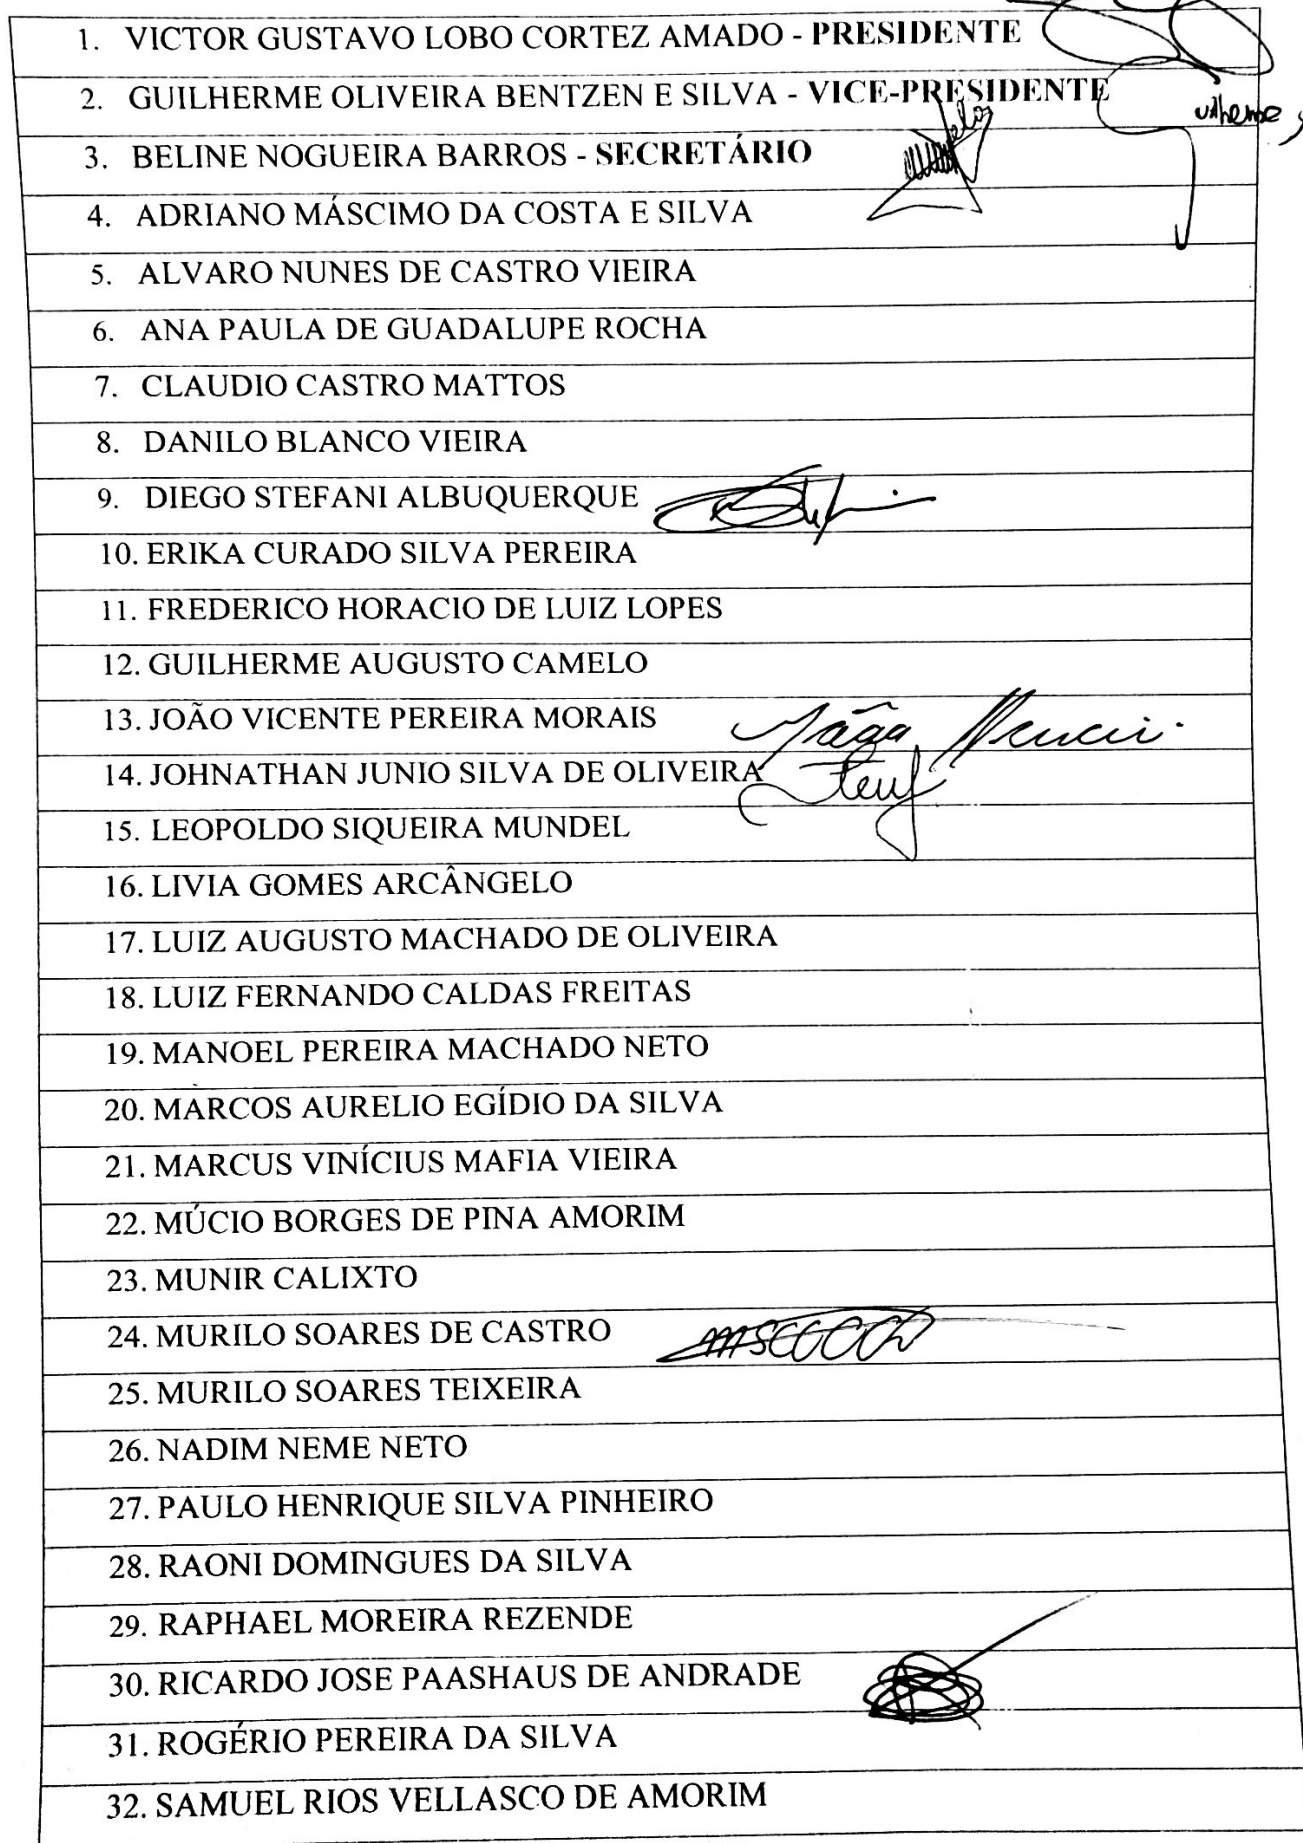 1. VICTOR GUSTAVO LOBO CORTEZ AMADO - PRESIDENTE
2. GUILHERME OLIVEIRA BENTZEN E SILVA - VICE-PRESIDENTE
3. BELINE NOGUEIRA BARROS - SECRETÁRIO
4. ADRIANO MÁSCIMO DA COSTA E SILVA
5. ALVARO NUNES DE CASTRO VIEIRA
6. ANA PAULA DE GUADALUPE ROCHA
7. CLAUDIO CASTRO MATTOS
8. DANILO BLANCO VIEIRA
9. DIEGO STEFANI ALBUQUERQUE
10. ERIKA CURADO SILVA PEREIRA
11. FREDERICO HORACIO DE LUIZ LOPES
12. GUILHERME AUGUSTO CAMELO
13. JOÃO VICENTE PEREIRA MORAIS
14. JOHNATHAN JUNIO SILVA DE OLIVEIRA
15. LEOPOLDO SIQUEIRA MUNDEL
16. LIVIA GOMES ARCÂNGELO
17. LUIZ AUGUSTO MACHADO DE OLIVEIRA
18. LUIZ FERNANDO CALDAS FREITAS
19. MANOEL PEREIRA MACHADO NETO
20. MARCOS AURELIO EGÍDIO DA SILVA
21. MARCUS VINÍCIUS MAFIA VIEIRA
22. MÚCIO BORGES DE PINA AMORIM
23. MUNIR CALIXTO
24. MURILO SOARES DE CASTRO
25. MURILO SOARES TEIXEIRA
26. NADIM NEME NETO
27. PAULO HENRIQUE SILVA PINHEIRO
28. RAONI DOMINGUES DA SILVA
29. RAPHAEL MOREIRA REZENDE
30. RICARDO JOSE PAASHAUS DE ANDRADE
31. ROGÉRIO PEREIRA DA SILVA
32. SAMUEL RIOS VELLASCO DE AMORIM